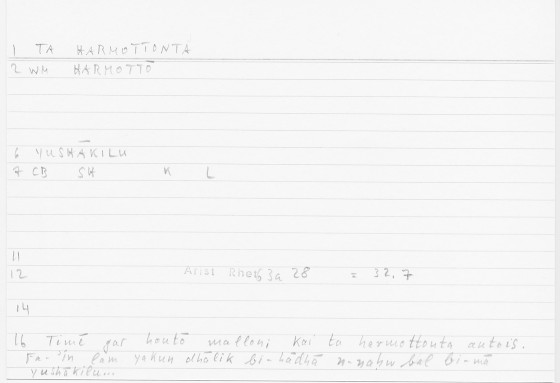 1 TA HARMOTTONTA
2 WM HARMOTTŌ
6 YUSHĀKILU
7 CB SH K L
11
12 Arist Rhet 63a 28 = 32, 7
14
16 Timē gar houtō mallon; kai ta harmottonta autois.
Fa-'in lam yakun dhālik bi-hādhā n-naḥw bal bi-mā
yushākilu...